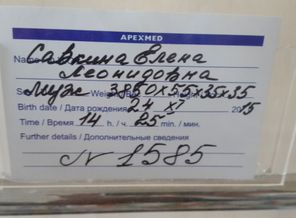 APEXMED
Name
Савкина Елена
Леонидовна
Муж 3850х55х35х35
Birth date / Дата рождения 24 XI 2015
Time / Время 14 h. / ч. 25 min. / мин.
Further details / Дополнительные сведения
N 1585